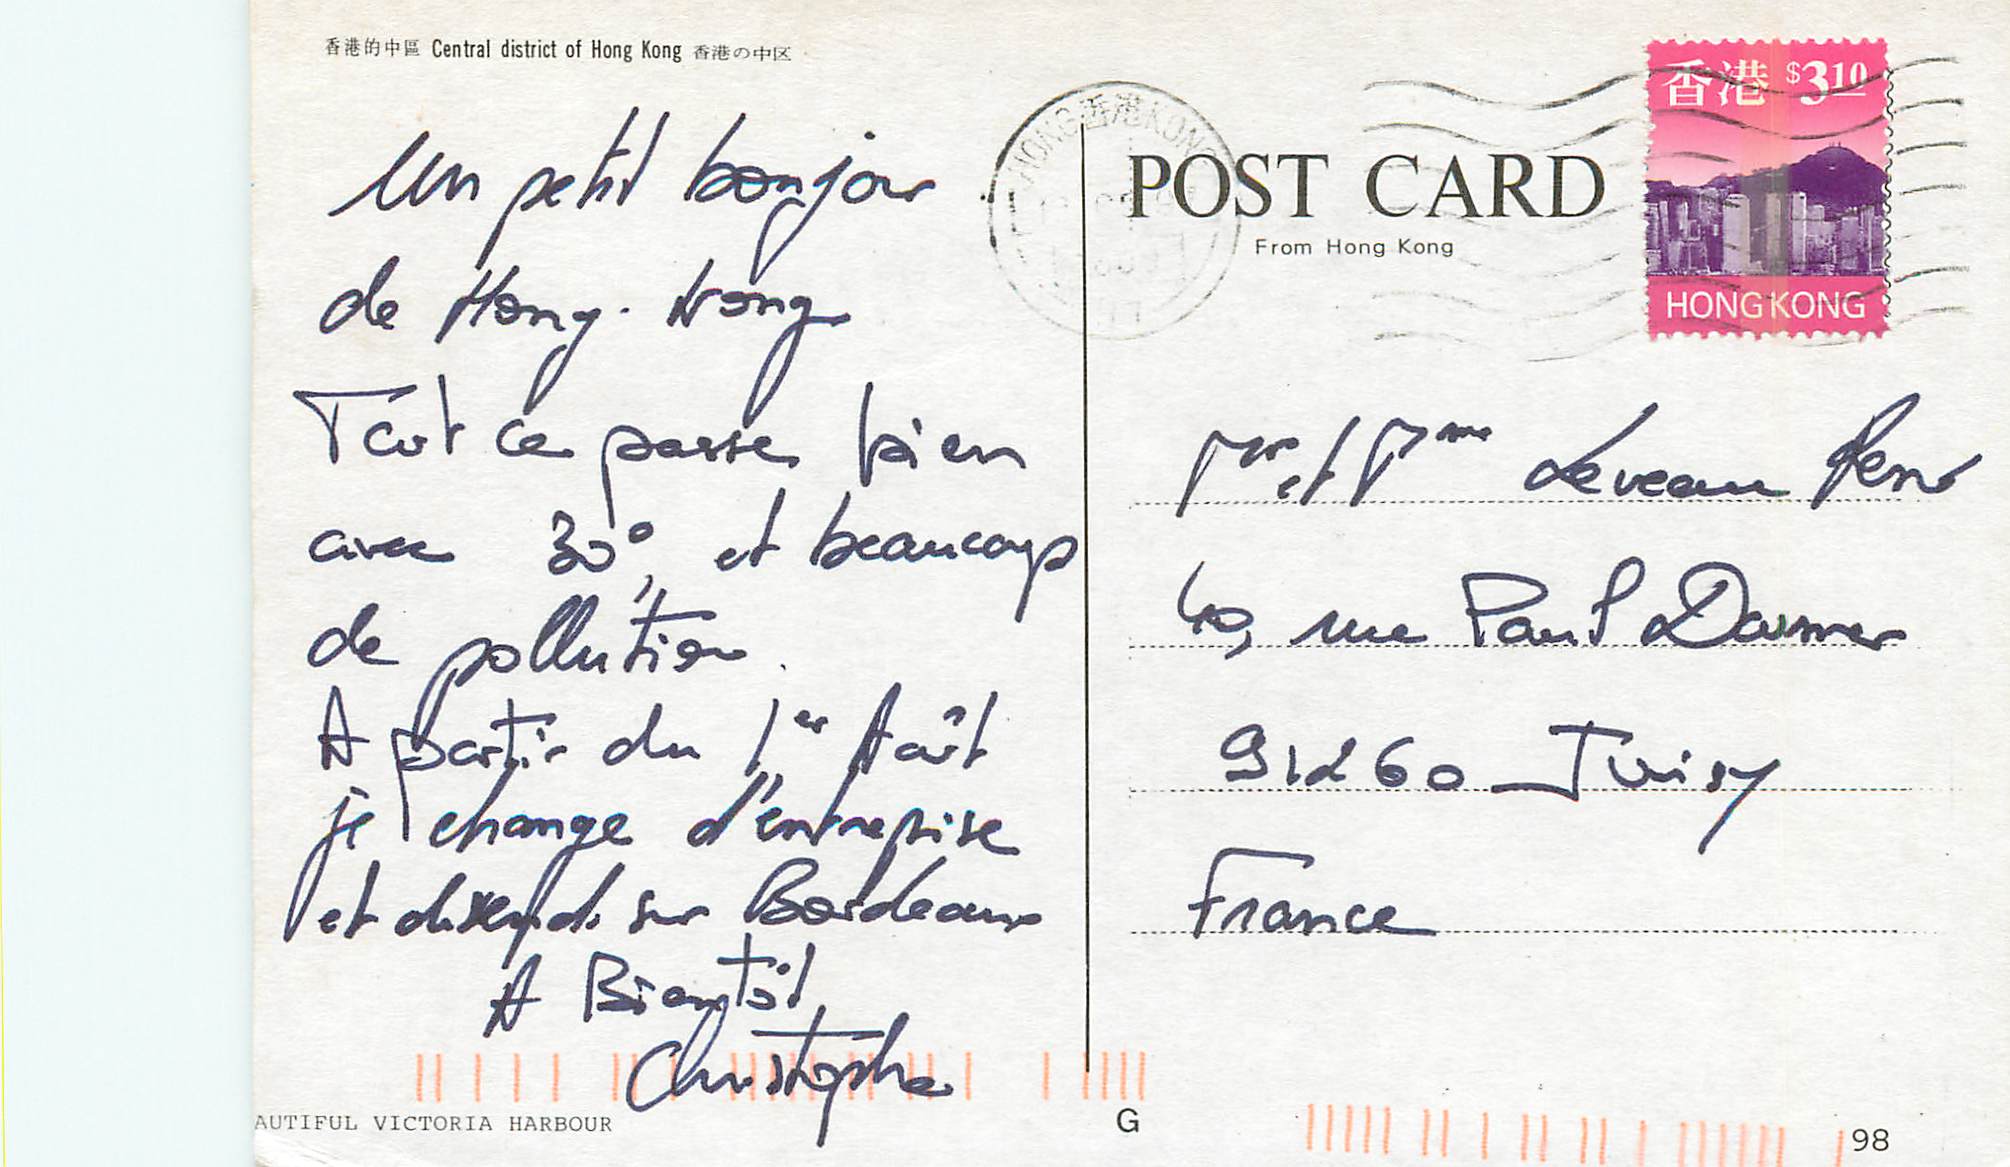 香港的中區 Central district of Hong Kong 香港の中区
Un petit bonjour
de Hong-Kong
Tout ce passe bien
avec 30°, et beaucoup
de pollution.
A partir du 1er Août
je change d'entreprise
et descends sur Bordeaux
A Bientôt,
Christophe
AUTIFUL VICTORIA HARBOUR
HONG 香港 KONG
POST CARD
From Hong Kong
香港 $3.10
HONG KONG
Mr et Mme Leveau René
40, rue Paul Doumer
91260 Juvisy
France
G
98